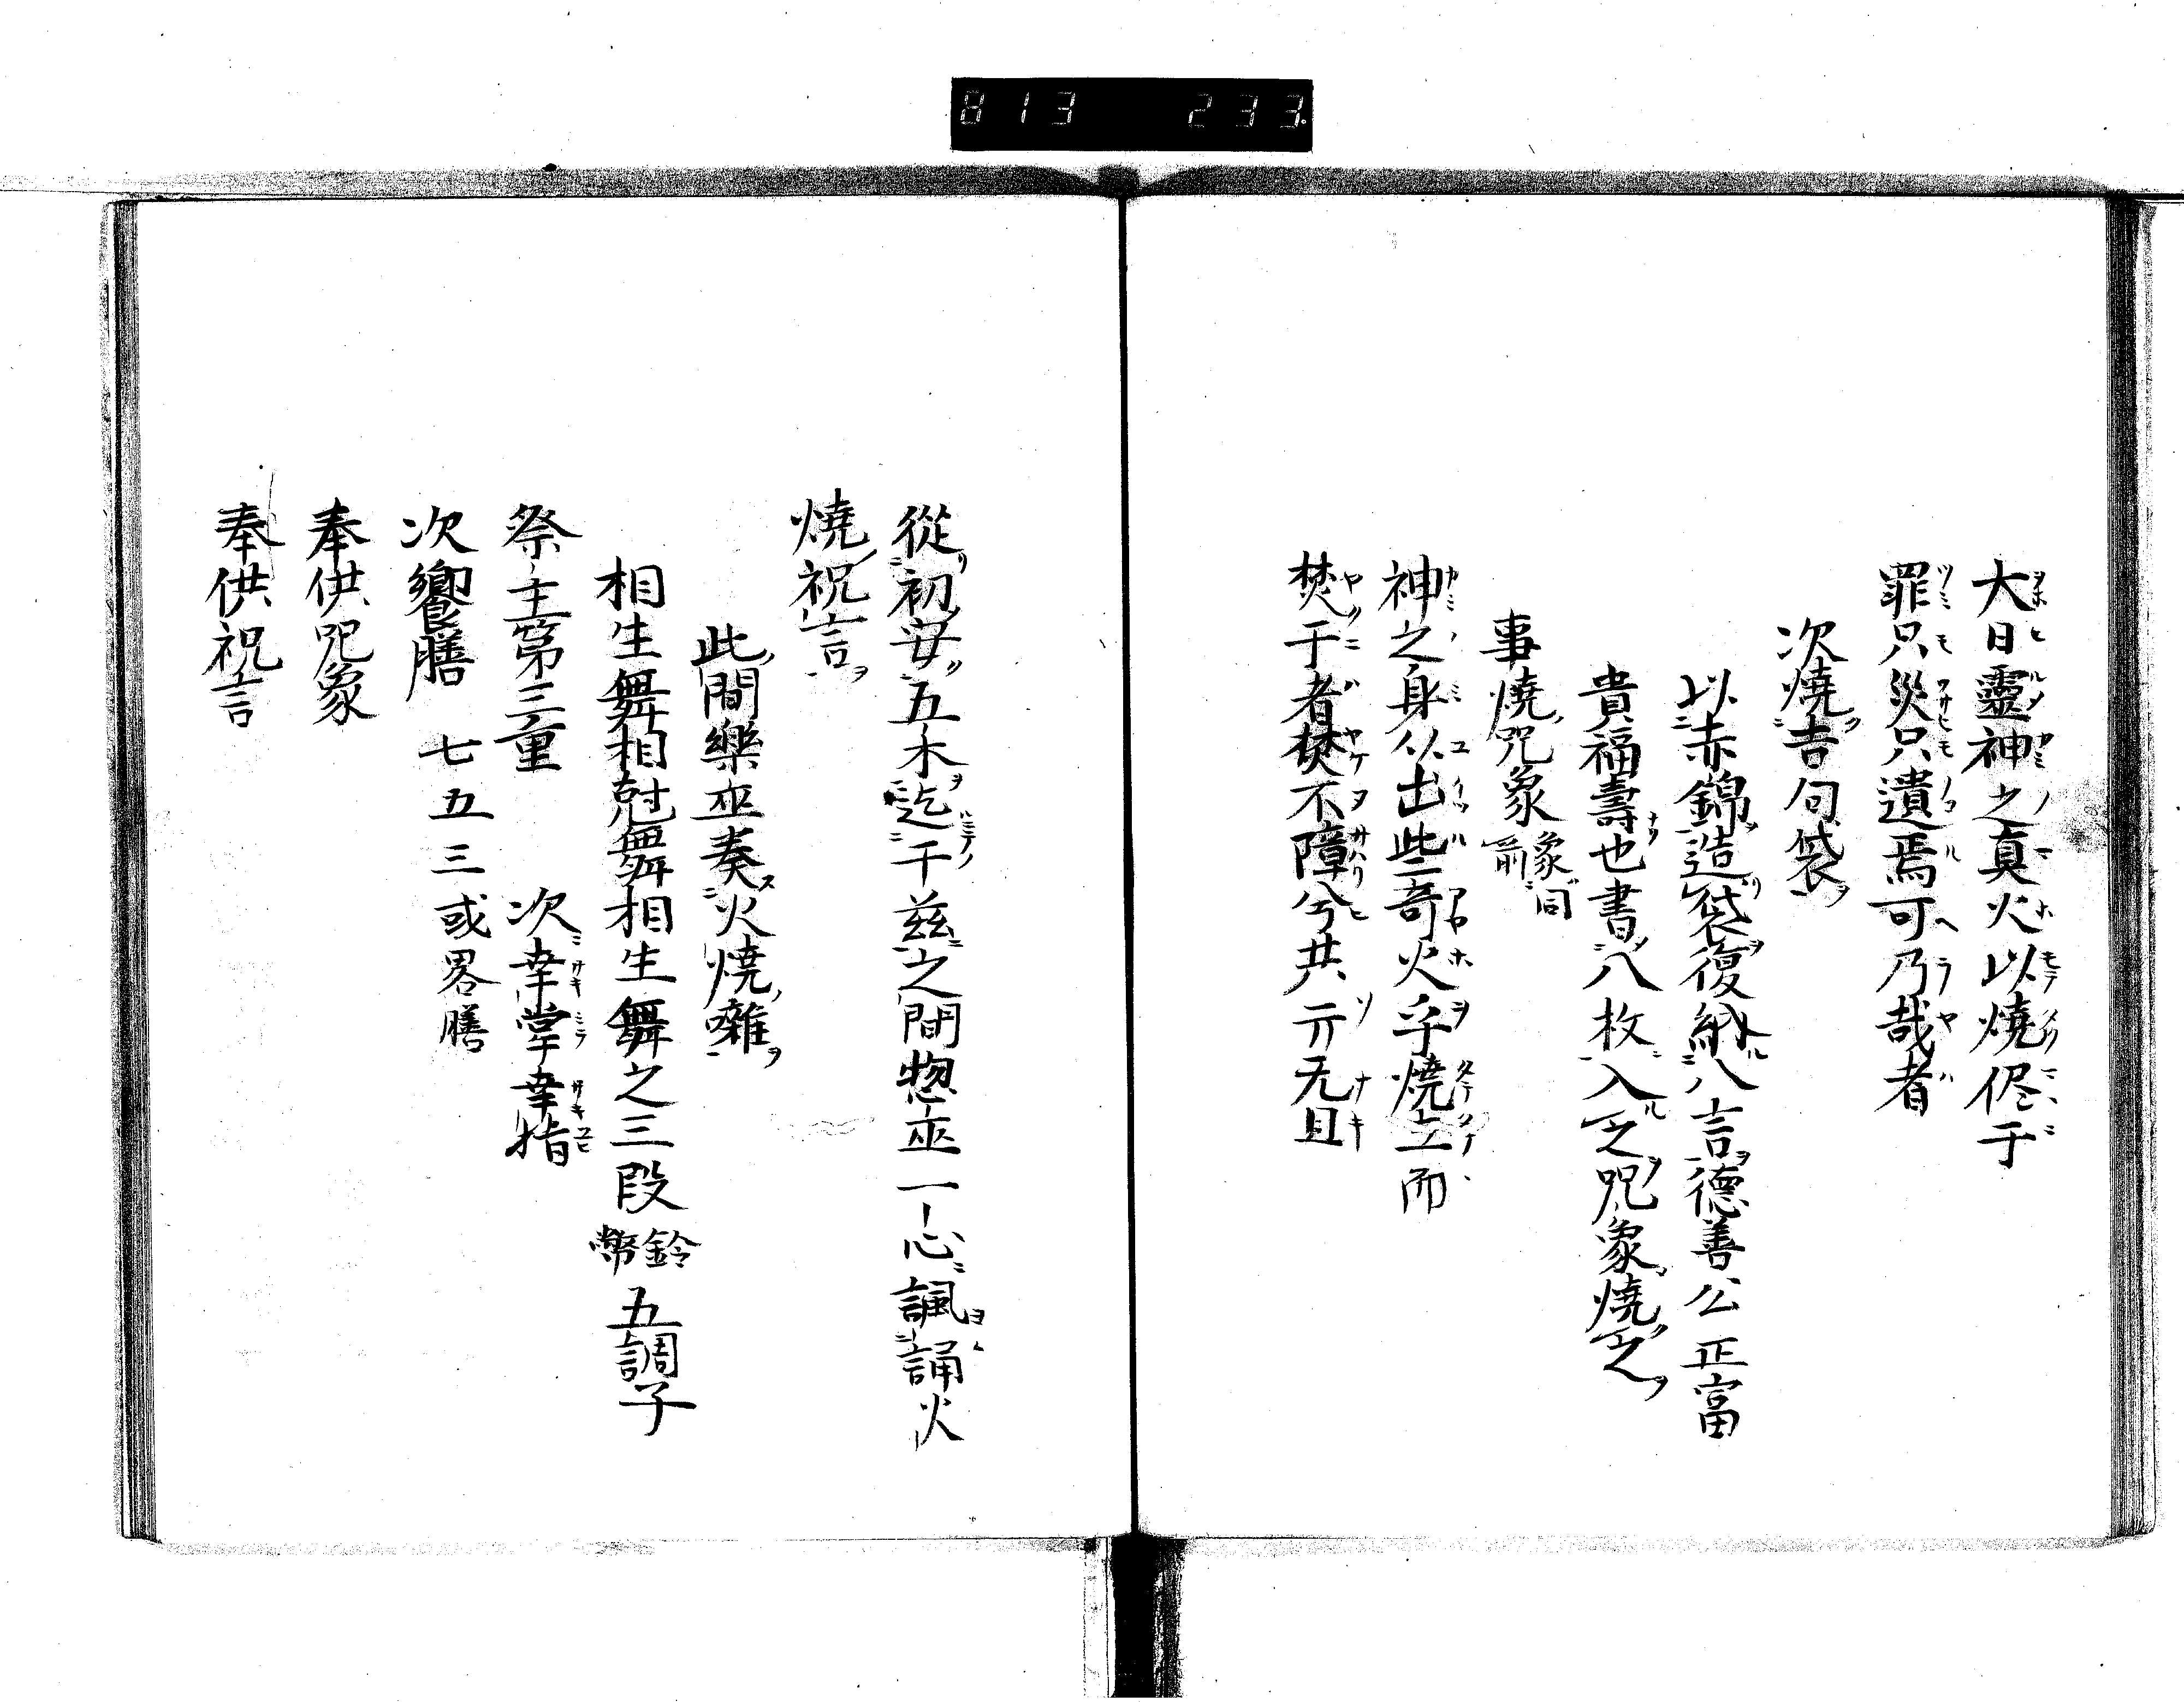 813 233
大日靈神之真火以燒侭于
罪只災只遺焉可乃哉者
次燒吉句袋
以赤錦造袋復納八言德善公正富
貴福壽也書八枚入之呪象燒之
事燒呪象 象同前
神之身从出此奇火乎燒上而
焚于者焚不障兮共亓无且
從初安五木迄于茲之間惣巫一心諷誦火
燒祝言
此間樂巫奏火燒囃
相生舞相尅舞相生舞之三段 鈴幣 五調子
祭主第三重 次幸掌幸指
次饗膳 七五三或畧膳
奉供呪象
奉供祝言